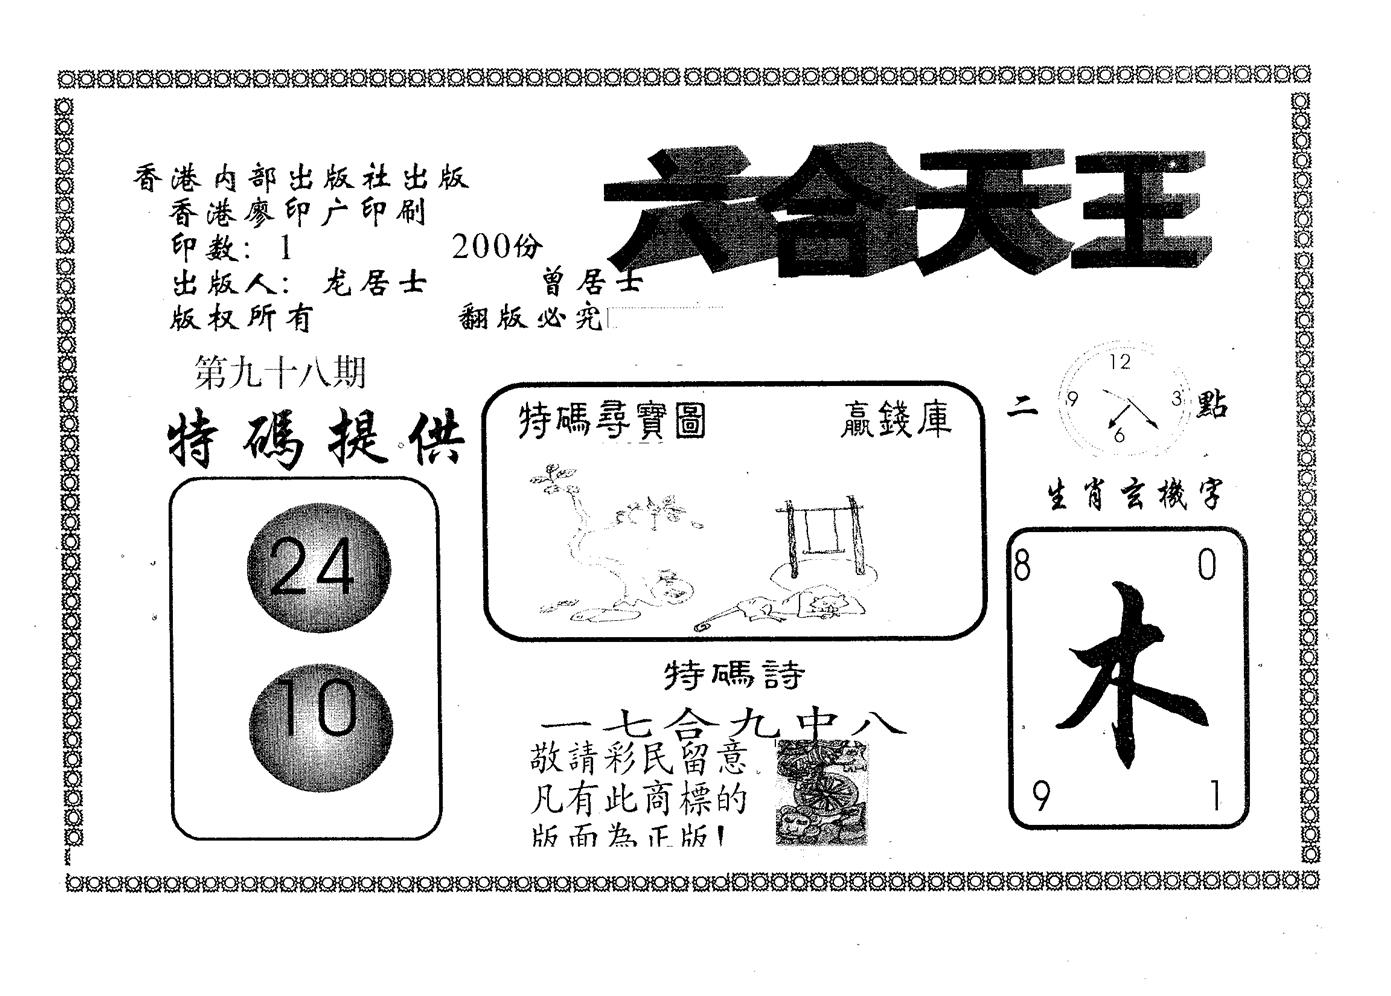 六合天王
香港内部出版社出版
香港廖印广印刷
印数：1 200份
出版人：龙居士 曾居士
版权所有 翻版必究
第九十八期
特碼提供
24
10
特碼尋寶圖 贏錢庫
特碼詩
一七合九中八
敬請彩民留意
凡有此商標的
版面為正版！
二 點
12
9 3
6
生肖玄機字
8 0
木
9 1